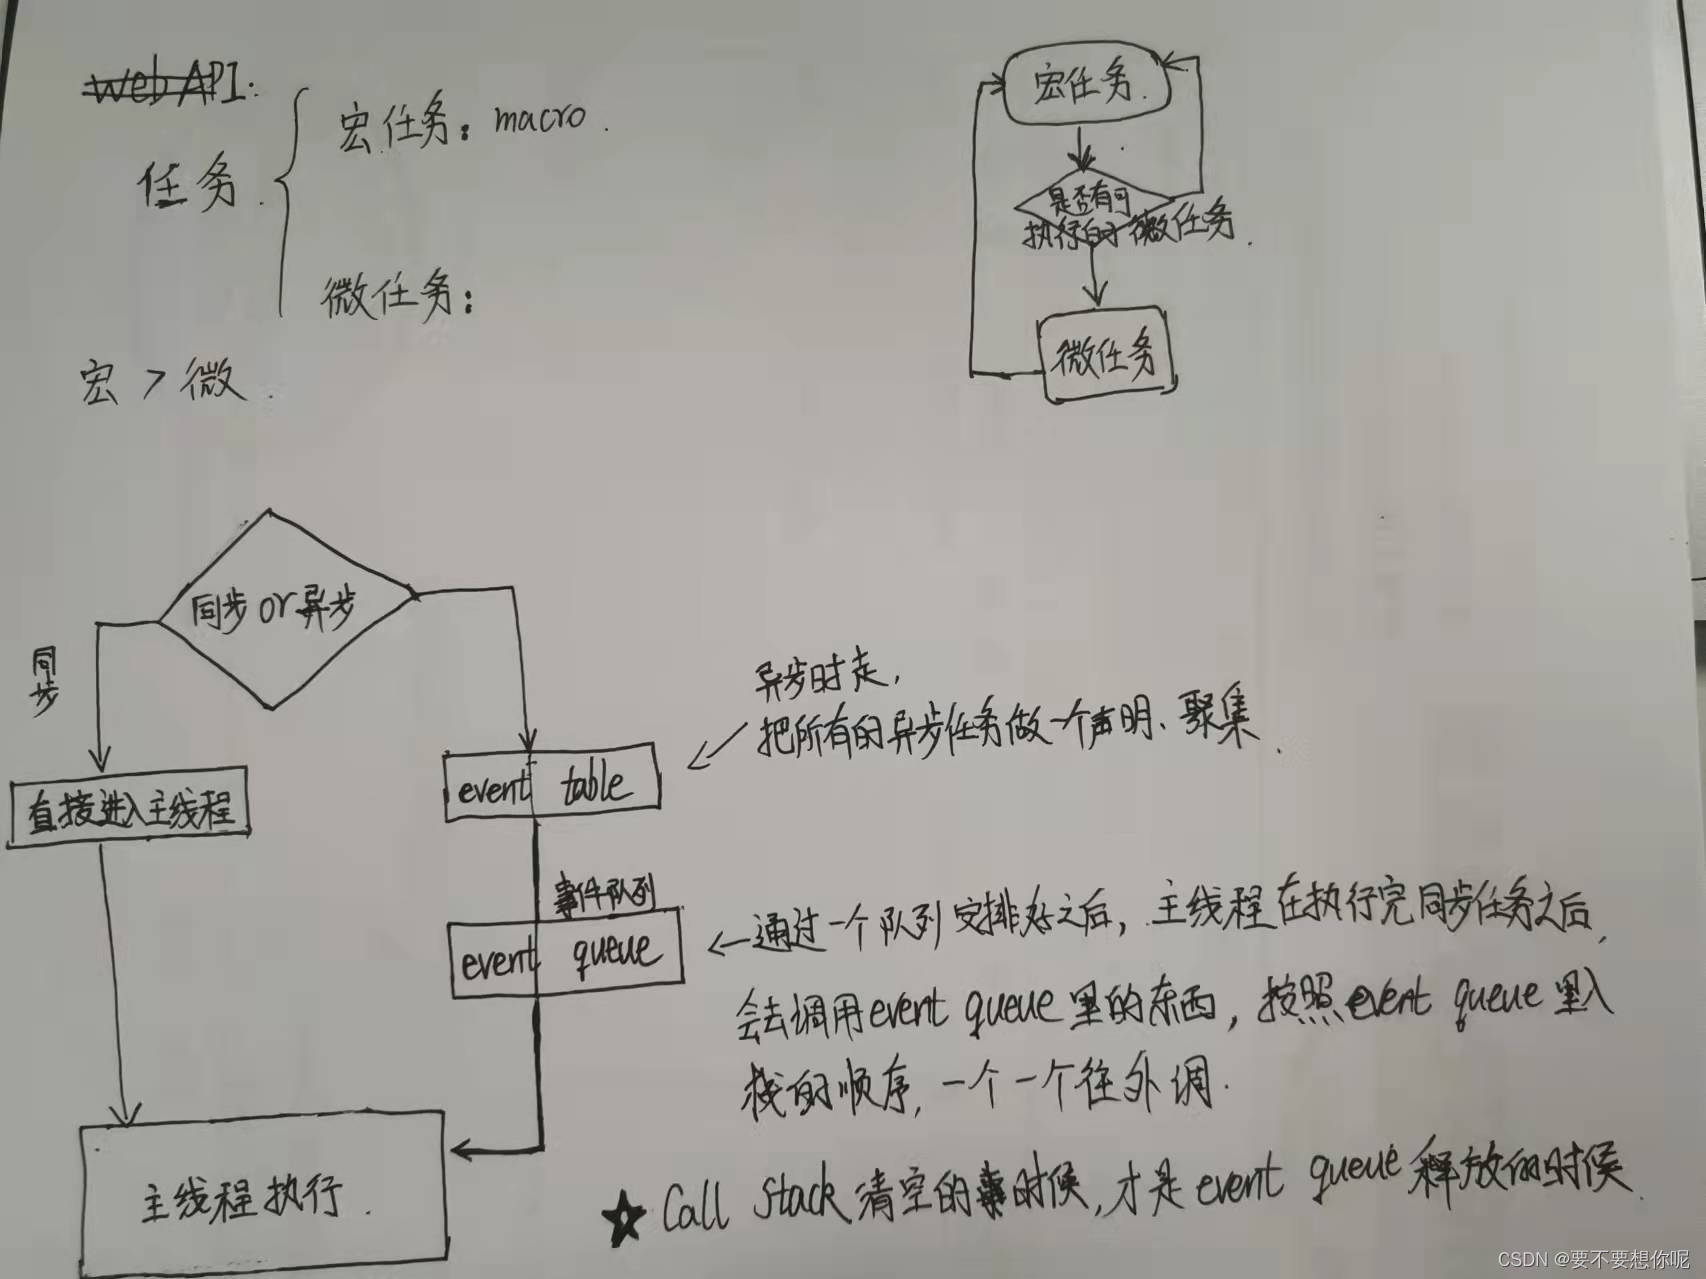 Web API:
任务
宏任务：macro.
微任务：
宏 > 微.
宏任务.
是否有可
执行的微任务.
微任务
同步or异步
同步
直接进入主线程
event table
异步时走，
把所有的异步任务做一个声明、聚集.
事件队列
event queue
通过一个队列安排好之后，主线程在执行完同步任务之后，
会去调用event queue里的东西，按照event queue里入
栈的顺序，一个一个往外调.
主线程执行.
★ Call Stack 清空的时候，才是event queue释放的时候.
CSDN @要不要想你呢